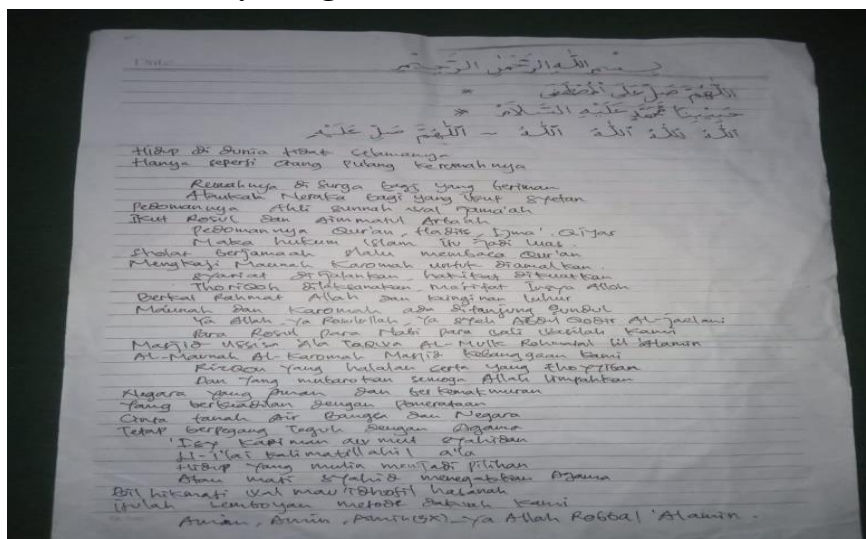 بسم الله الرحمن الرحيم
اللهم صل على المصطفى *
حبيبنا محمد عليه السلام *
الله الله الله الله ~ اللهم صل عليه
Hidup di dunia tidak selamanya
Hanya seperti orang pulang kerumahnya
Rumahnya di Surga bagi yang beriman
Ataukah Neraka bagi yang ikut syetan
Pedomannya Ahli Sunnah wal Jama'ah
Ikut Rosul dan Aimmatul Arba'ah
Pedomannya Qur'an, Hadits, Ijma'. Qiyas
Maka hukum Islam itu jadi luas
Sholat berjamaah selalu membaca Qur'an
Mengkaji Maunah Karomah untuk diamalkan
Syariat dijalankan hakikat dikuatkan
Thoriqoh dilaksanakan Ma'rifat Insya Alloh
Berkat Rahmat Allah dan keinginan luhur
Maunah dan Karomah ada ditanjung gundul
Ya Allah Ya Rasulollah Ya Syeh Abdul Qodir Al-Jaelani
Para Rosul Para Nabi Para wali Wasilah Kami
Masjid Ussisa 'Ala Taqwa Al-Mulk Rohmatal lil 'Alamin
Al-Maunah Al-Karomah Masjid Kebanggaan kami
Rizqon yang halalan serta yang thoyyiban
Dan yang mubarokan semoga Allah limpahkan
Negara yang aman dan berkemakmuran
Yang berkeadilan dengan pemerataan
Cinta tanah Air Bangsa dan Negara
Tetap berpegang Teguh dengan Agama
'Isy Kariman aw mut syahidan
Li-i'lai kalimatillahil a'la
Hidup yang mulia menjadi pilihan
Atau mati syahid menegakkan Agama
Bil hikmati wal mau'idhotil hasanah
Itulah semboyan metode dakwah kami
Amin, Amin, Amin (3x) Ya Allah Robbal 'Alamin.